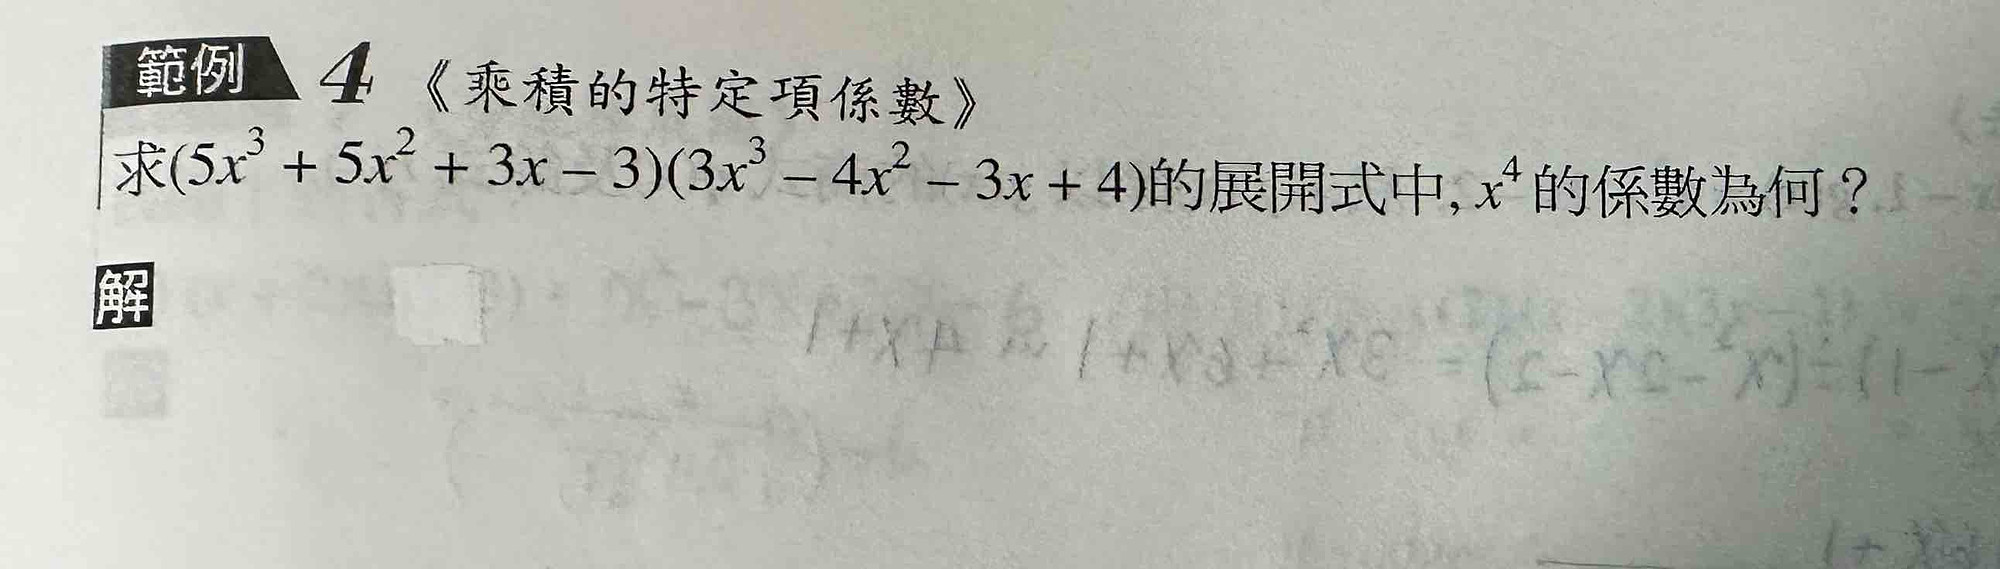 範例 4 《乘積的特定項係數》
求(5x³ + 5x² + 3x − 3)(3x³ − 4x² − 3x + 4)的展開式中, x⁴的係數為何？
解